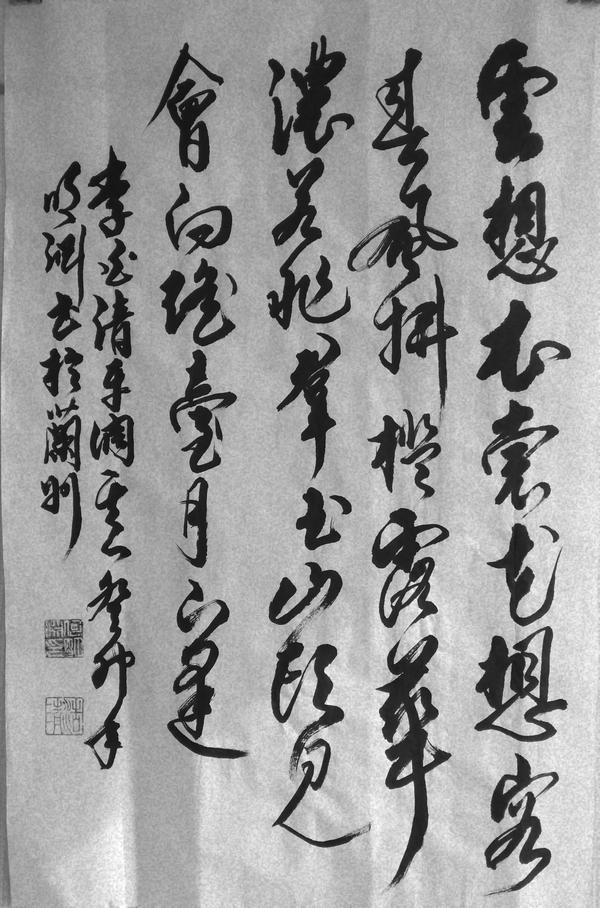 雲想衣裳花想容
春風拂檻露華
濃若非羣玉山頭見
會向瑤臺月下逢
李白清平調其一癸卯年
明書於蘭州